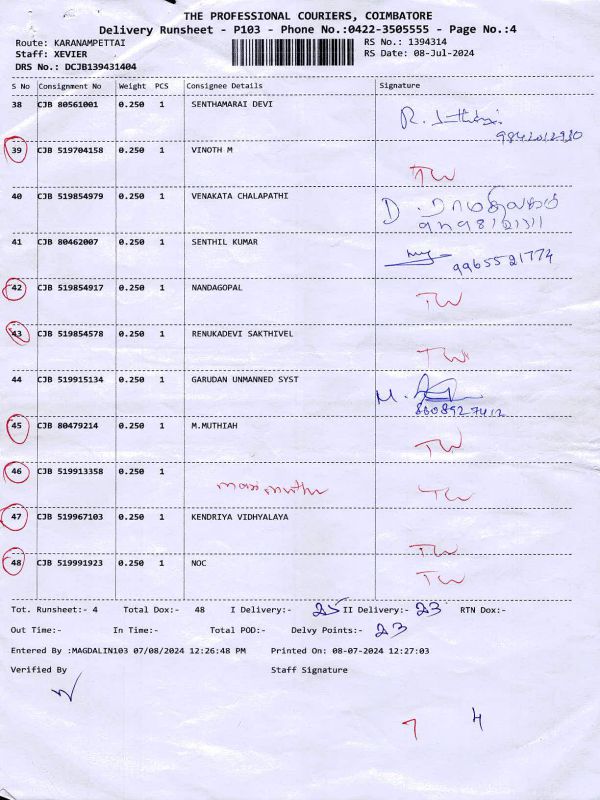 THE PROFESSIONAL COURIERS, COIMBATORE
Delivery Runsheet - P103 - Phone No.:0422-3505555 - Page No.:4
Route: KARANAMPETTAI RS No.: 1394314
Staff: XEVIER RS Date: 08-Jul-2024
DRS No.: DCJB139431404
S No Consignment No Weight PCS Consignee Details Signature
38 CJB 80561001 0.250 1 SENTHAMARAI DEVI
9842012930
39 CJB 519704158 0.250 1 VINOTH M TW
40 CJB 519854979 0.250 1 VENAKATA CHALAPATHI D.
41 CJB 80462007 0.250 1 SENTHIL KUMAR 9965521774
42 CJB 519854917 0.250 1 NANDAGOPAL TW
43 CJB 519854578 0.250 1 RENUKADEVI SAKTHIVEL TW
44 CJB 519915134 0.250 1 GARUDAN UNMANNED SYST M.
8608927412
45 CJB 80479214 0.250 1 M.MUTHIAH TW
46 CJB 519913358 0.250 1 TW
47 CJB 519967103 0.250 1 KENDRIYA VIDHYALAYA TW
48 CJB 519991923 0.250 1 NOC TW
Tot. Runsheet:- 4 Total Dox:- 48 I Delivery:- 25 II Delivery:- 23 RTN Dox:-
Out Time:- In Time:- Total POD:- Delvy Points:- 23
Entered By :MAGDALIN103 07/08/2024 12:26:48 PM Printed On: 08-07-2024 12:27:03
Verified By Staff Signature
7 4